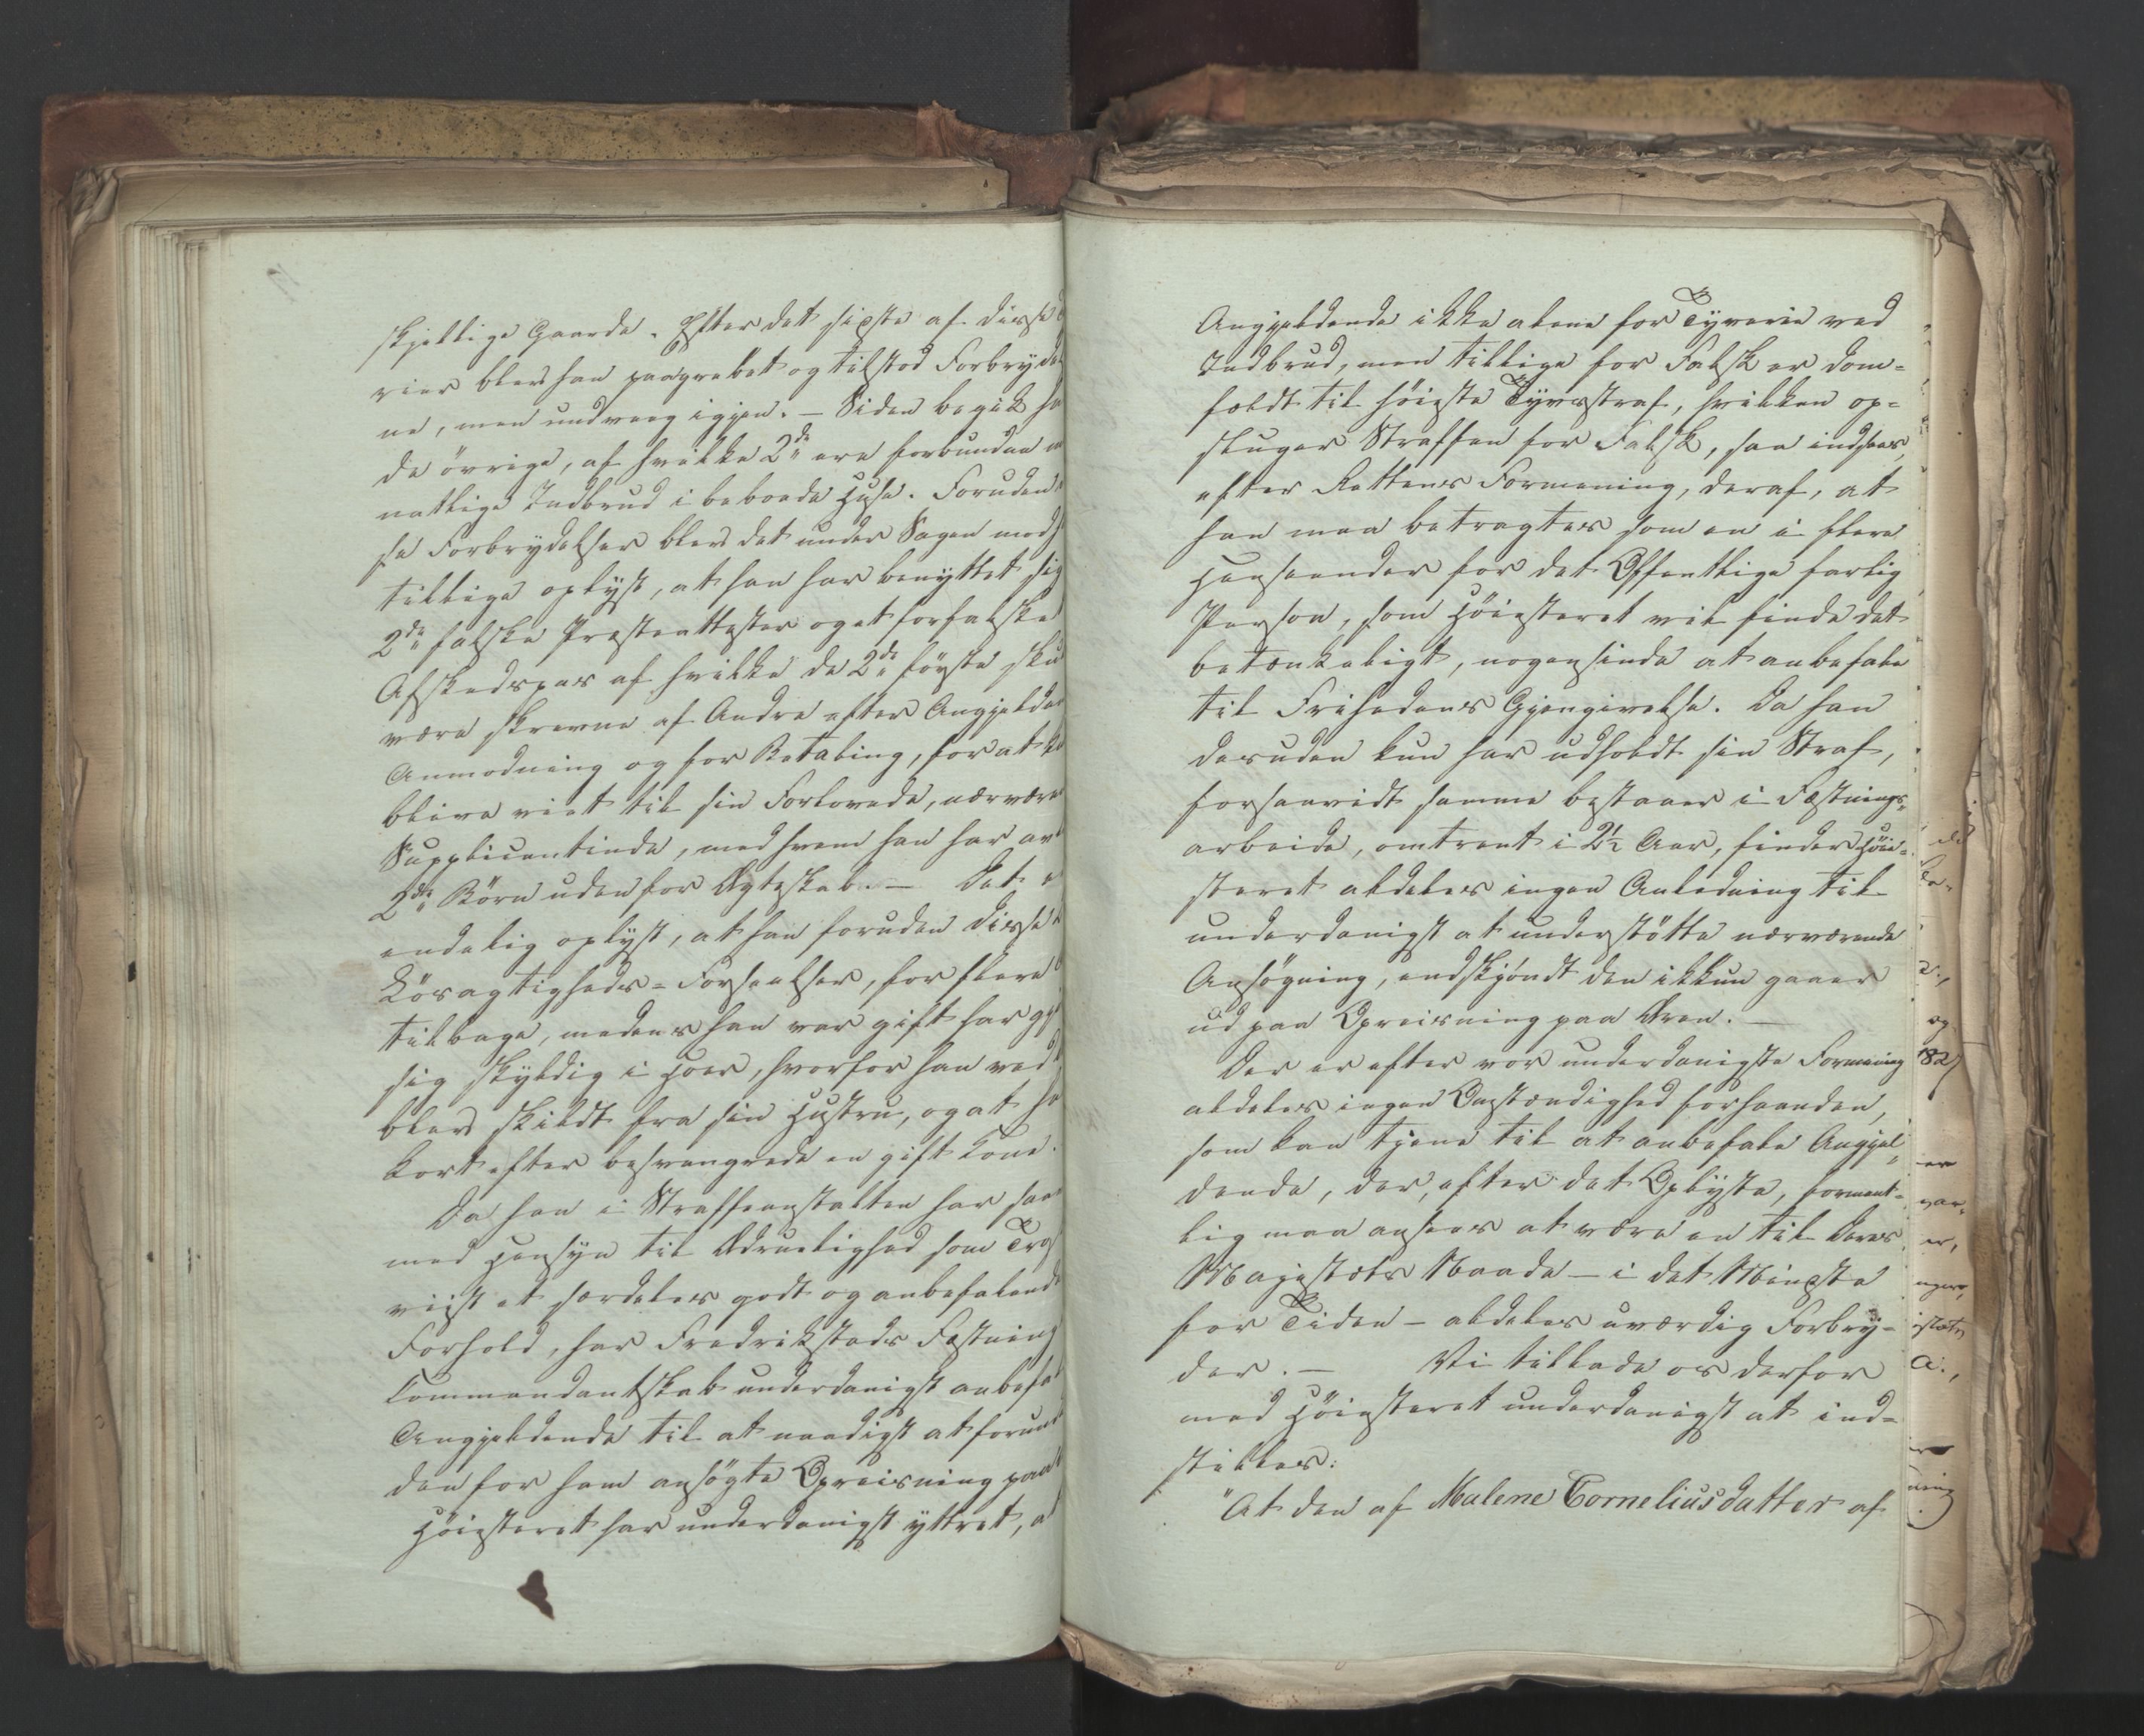 skjellige Gaarde. Efter det sidste af disse
rier blev han paagrebet og tilstod Forbryde
ne, men undveeg igjen. – Siden begik ha
de övrige, af hvilke 2de ere forbundne m
natlige Indbrud i beboede Huse. Foruden
se Forbrydelser blev det under Sagen mod
tillige oplyst, at han har benyttet sig
2de falske Præsteattester og et forfalsket
Afskedspas af hvilke de 2de første sku
være skrevne af Andre efter Angjelden
Anmodning og for Betaling, for at
blive viet til sin Forlovede, nærvære
Supplicantinde, med hvem han har av
2de Börn udenfor Ægteskab. – Det e
endelig oplyst, at han foruden disse
Lösagtigheds-Forseelser, for flere
tilbage, medens han var gift har gj
sig skyldig i Hoer, hvorfor han ved
blev skildt fra sin Hustru, og at ha
kort efter besvangrede en gift Kone.
Da han i Straffeanstalten har saa
med Hensyn til Ædruelighed som Tro
viist et særdeles godt og anbefalende
Forhold, har Fredrikstads Fæstning
Commandantskab underdanigst anbefal
Angjeldende til at naadigst at forund
den for ham ansögte Opreisning paa
Höiesteret har underdanigst yttret, at
Angjeldende ikke alene for Tyverie ved
Indbrud, men tillige for Falsk er dom-
fældt til höieste Tyvsstraf, hvilken op-
sluger Straffen for Falsk, saa indsees,
efter Rettens Formening, deraf, at
han maa betragtes som en i flere
Henseender for det Offentlige farlig
Person, som Höiesteret vil finde det
betænkeligt, nogensinde at anbefale
til Frihedens Gjengivelse. Da han
desuden kun har udholdt sin Straf,
forsaavidt samme bestaaer i Fæstnings-
arbeide, omtrent i 2½ Aar, finder Höie-
steret aldeles ingen Anledning til
underdanigst at understötte nærværende
Ansögning, endskjöndt den ikkun gaaer
ud paa Opreisning paa Æren. –
Der er efter vor underdanigste Formening
aldeles ingen Omstændighed forhaanden,
som kan tjene til at anbefale Angjel-
dende, der, efter det Oplyste, forment-
lig maa ansees at være en til Deres
Majestæts Naade – i det Mindste
for Tiden – aldeles uværdig Forbry-
der. – Vi tillade os derfor
med Höiesteret underdanigst at ind-
stille:
"At den af Malene Corneliusdatter af